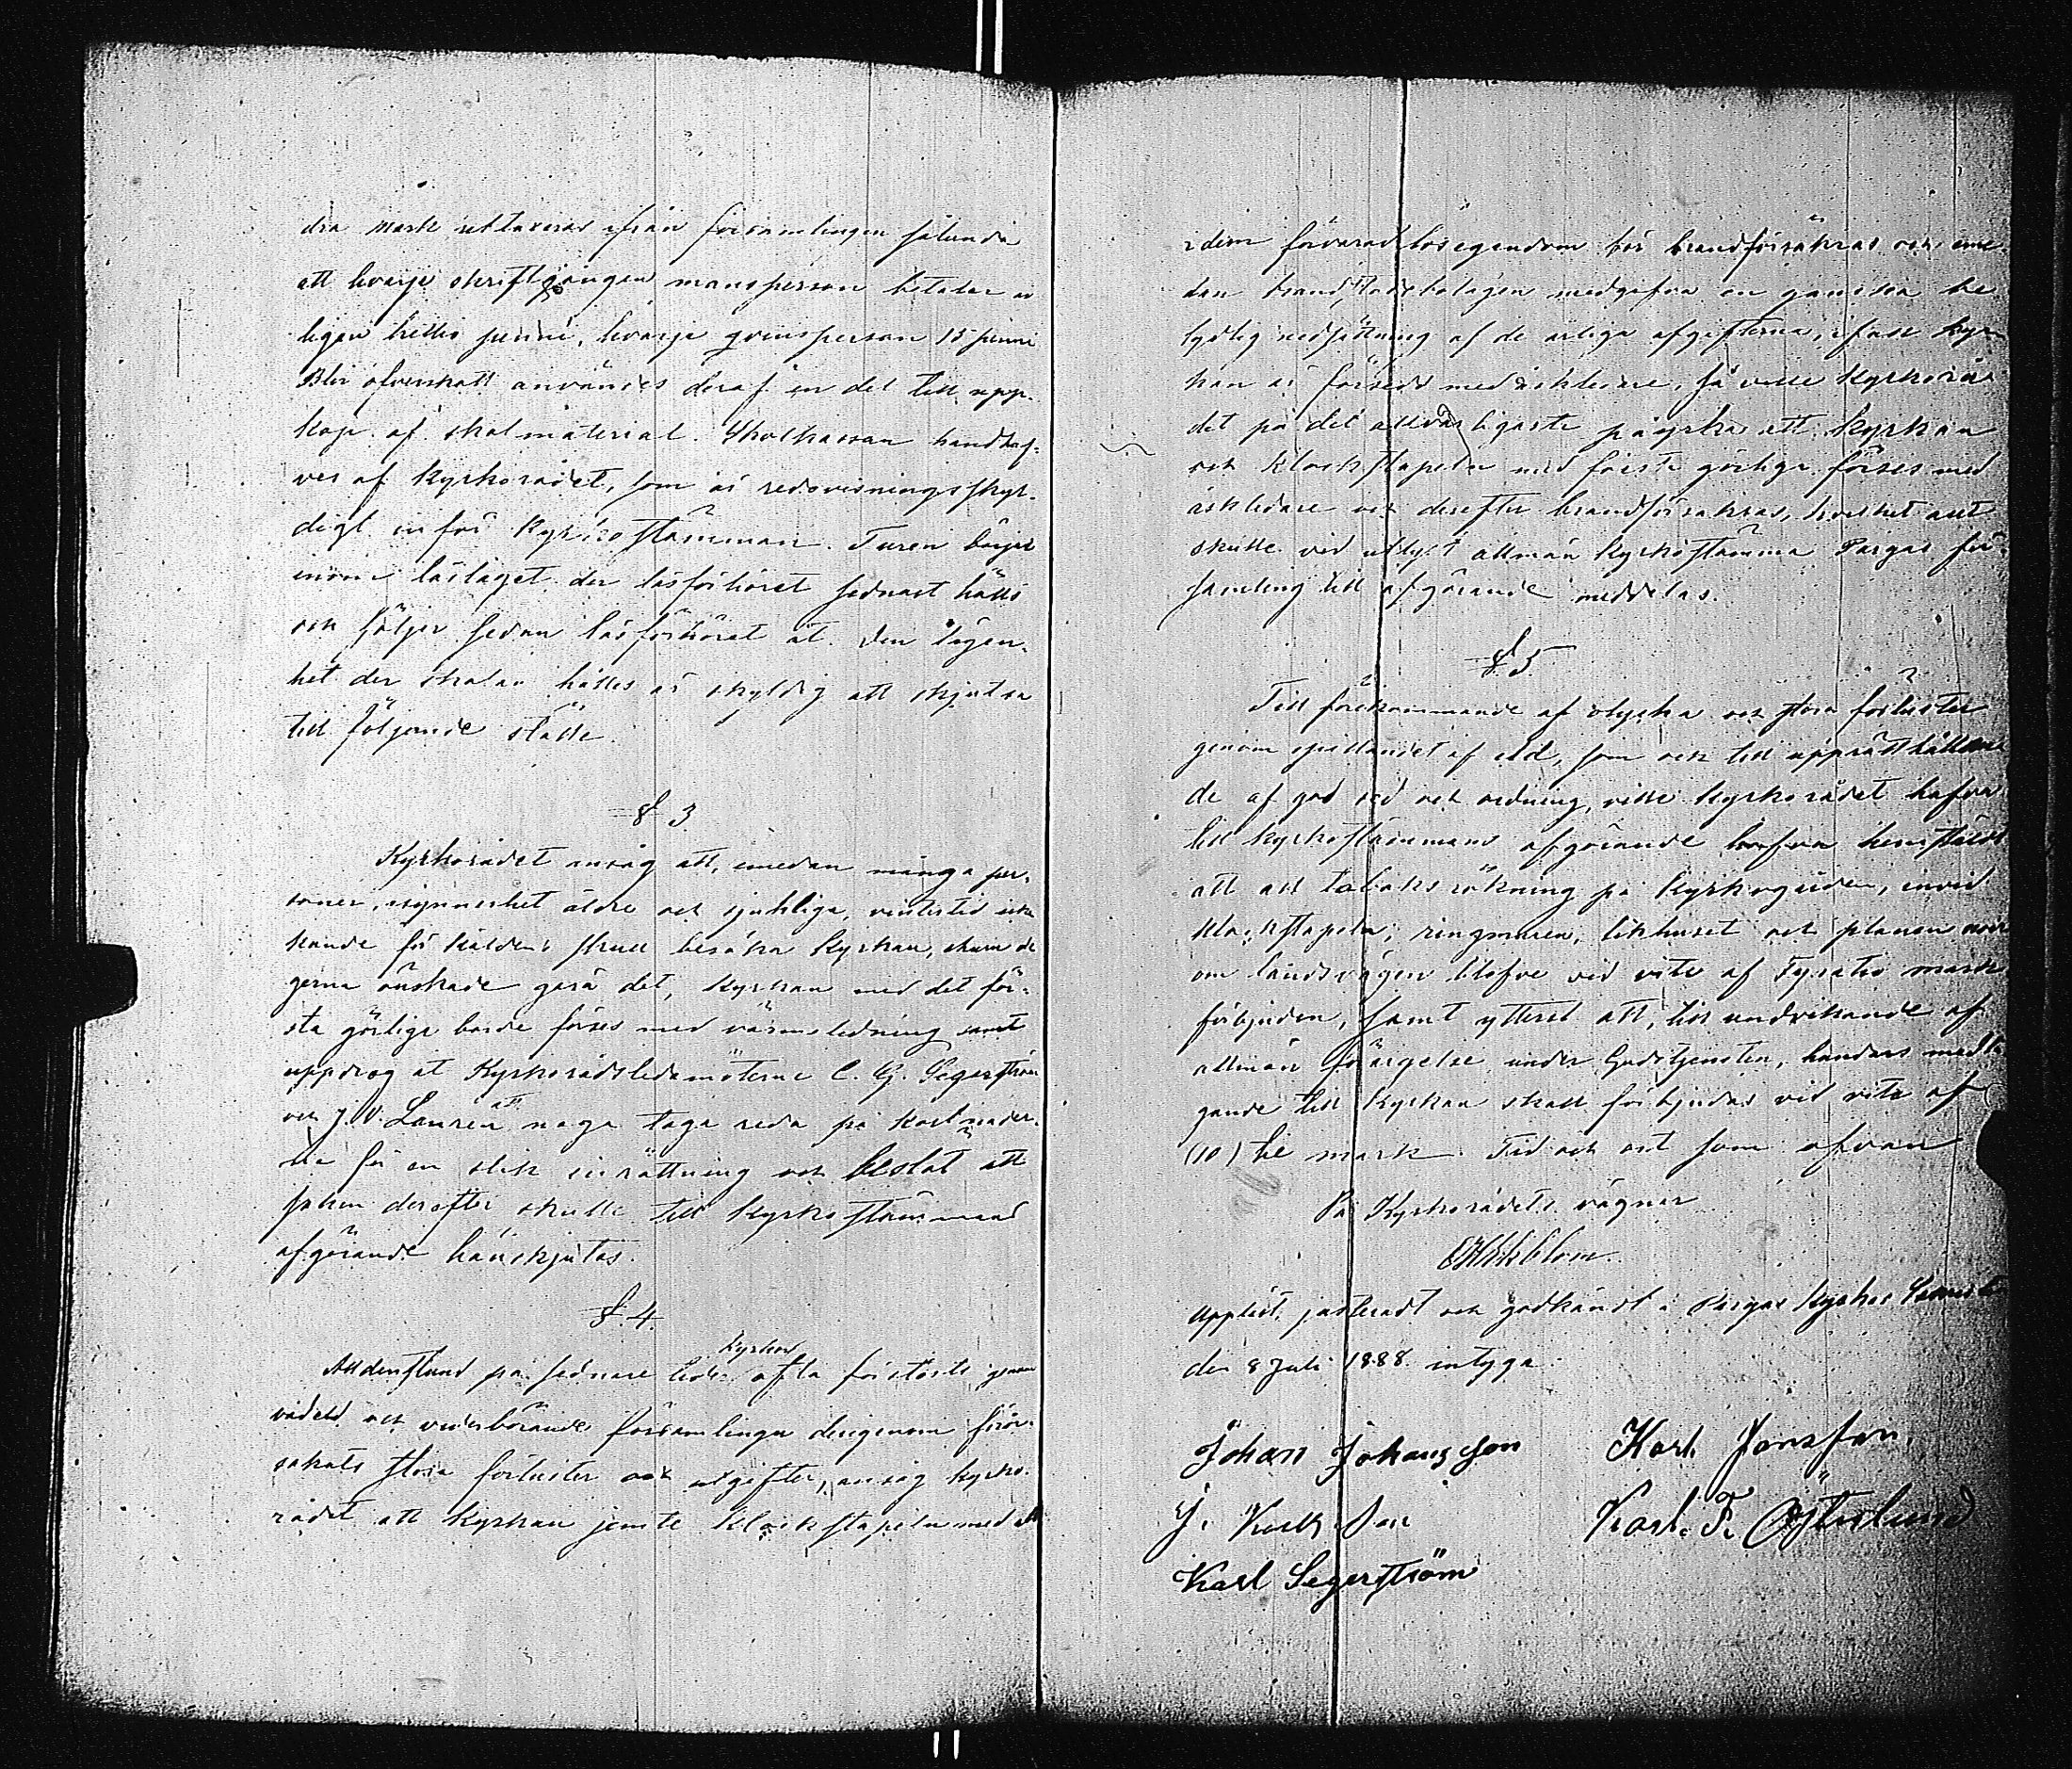 dra mark uttaxeras ifrån församlingen sålunda
att hvarje skriftgången mansperson betalar år
ligen trettio penni, hvarje qvinsperson 15 penni
Blir öfverskott användes deraf en del till upp-
köp af skolmaterial. Skolkassan handhaf-
ves af Kyrkorådet, som är redovisningsskyl-
digt inför Kyrkostämman. Turen börjar
inom läslaget der läsförhöret sednast hålls
och följer sedan läsförhöret åt. Den lägen-
het der skolan hålles är skyldig att skjutsa
till följande ställe.
§ 3.
Kyrkorådet ansåg att, emedan många per-
soner, isynnerhet äldre och sjukliga, vintertid icke
kunde för köldens skull besöka Kyrkan, ehuru de
gerna önskade göra det, Kyrkan med det för-
sta görliga borde förses med värmeledning samt
uppdrog åt Kyrkorådsledamöterne C. G. Segerström
och J. V. Lauren att noga taga reda på kostnader-
na för en slik inrättning och beslöt att
saken derefter skulle till Kyrkostämmans
afgörande hänskjutas.
§ 4.
Alldenstund på sednare tider Kyrkor ofta förstörts genom
vådeld och vederbörande församlingar derigenom föror-
sakats stora förluster och utgifter, ansåg kyrko-
rådet att Kyrkan jemte klockstapeln med all
i dem förvarad lösegendom bör brandförsäkras och eme-
dan brandstodsbolagen medgifva en ganska be
tydlig nedsättning af de årliga afgifterna, ifall kyr
kan är försedd med åskledare, så ville Kyrkorå-
det på det allvarligaste påyrka att Kyrkan
och Klockstapeln med första görliga förses med
åskledare och derefter brandförsäkras, hvilket allt
skulle vid utlyst allmän Kyrkostämma Pargas för-
samling till afgörande meddelas.
§ 5.
Till förekommande af olycka och stora förluster
genom spillandet af eld, som och till upprätthållan
de af god sed och ordning, ville Kyrkorådet hafva
till Kyrkostämmans afgörande hemstäldt
att all tobaksrökning på Kyrkogården, invid
klockstapeln, ringmuren, likhuset och planen
om landsvägen blefve vid vite af Fyratio mark
förbjuden, samt ytterst att, till undvikande af
allmän förargelse under Gudstjensten, hundars medta
gande till Kyrkan skall förbjudas vid vite af
(10) tio mark. Tid och ort som ofvan
På Kyrkorådets vägnar
Uppläst, justeradt och godkändt i Pargas Kyrkas
den 8 Juli 1888 intyga:
Johan Johansson Karl Jansson,
Karl F. Österlund
Karl Segerström